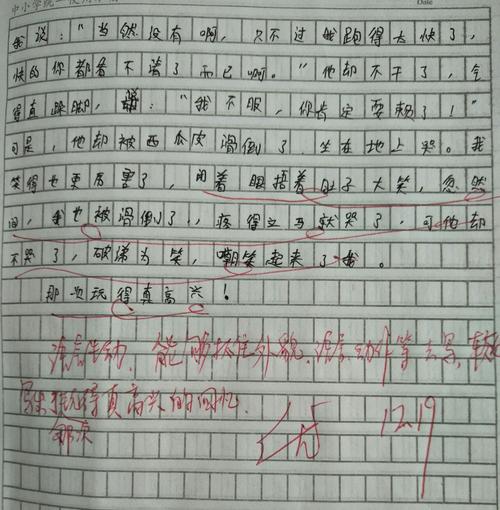 Date
我说：“当然没有啊，只不过我跑得太快了，
快的你都看不清了而已啊。”他却不干了，气
得直跺脚，说：“我不服，你肯定耍赖了！”
可是，他却被西瓜皮滑倒了，坐在地上哭。我
笑得也更厉害了，闭着眼捂着肚子大笑，忽然
间，我也被滑倒了，疼得立马就哭了，可他却
不哭了，破涕为笑，嘲笑起来了我。
那次玩得真高兴！
语言生动，能够抓住外貌、语言、动作等
真高兴的回忆
12.19